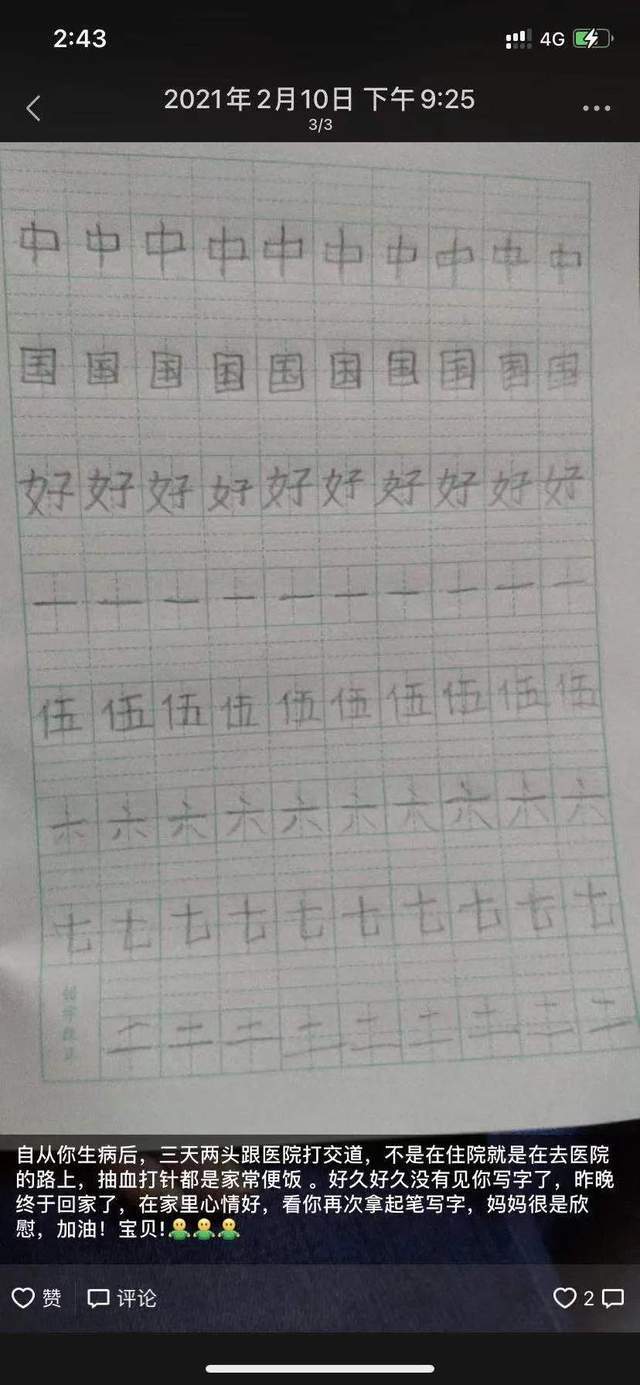 2:43
4G
2021年2月10日 下午9:25
3/3
中 中 中 中 中 中 中 中 中 中
国 国 国 国 国 国 国 国 国 国
好 好 好 好 好 好 好 好 好 好
一 一 一 一 一 一 一 一 一 一
伍 伍 伍 伍 伍 伍 伍 伍 伍 伍
六 六 六 六 六 六 六 六 六 六
七 七 七 七 七 七 七 七 七 七
二 二 二 二 二 二 二 二 二
自从你生病后，三天两头跟医院打交道，不是在住院就是在去医院
的路上，抽血打针都是家常便饭 。好久好久没有见你写字了，昨晚
终于回家了，在家里心情好，看你再次拿起笔写字，妈妈很是欣
慰，加油！宝贝!
赞 评论 2